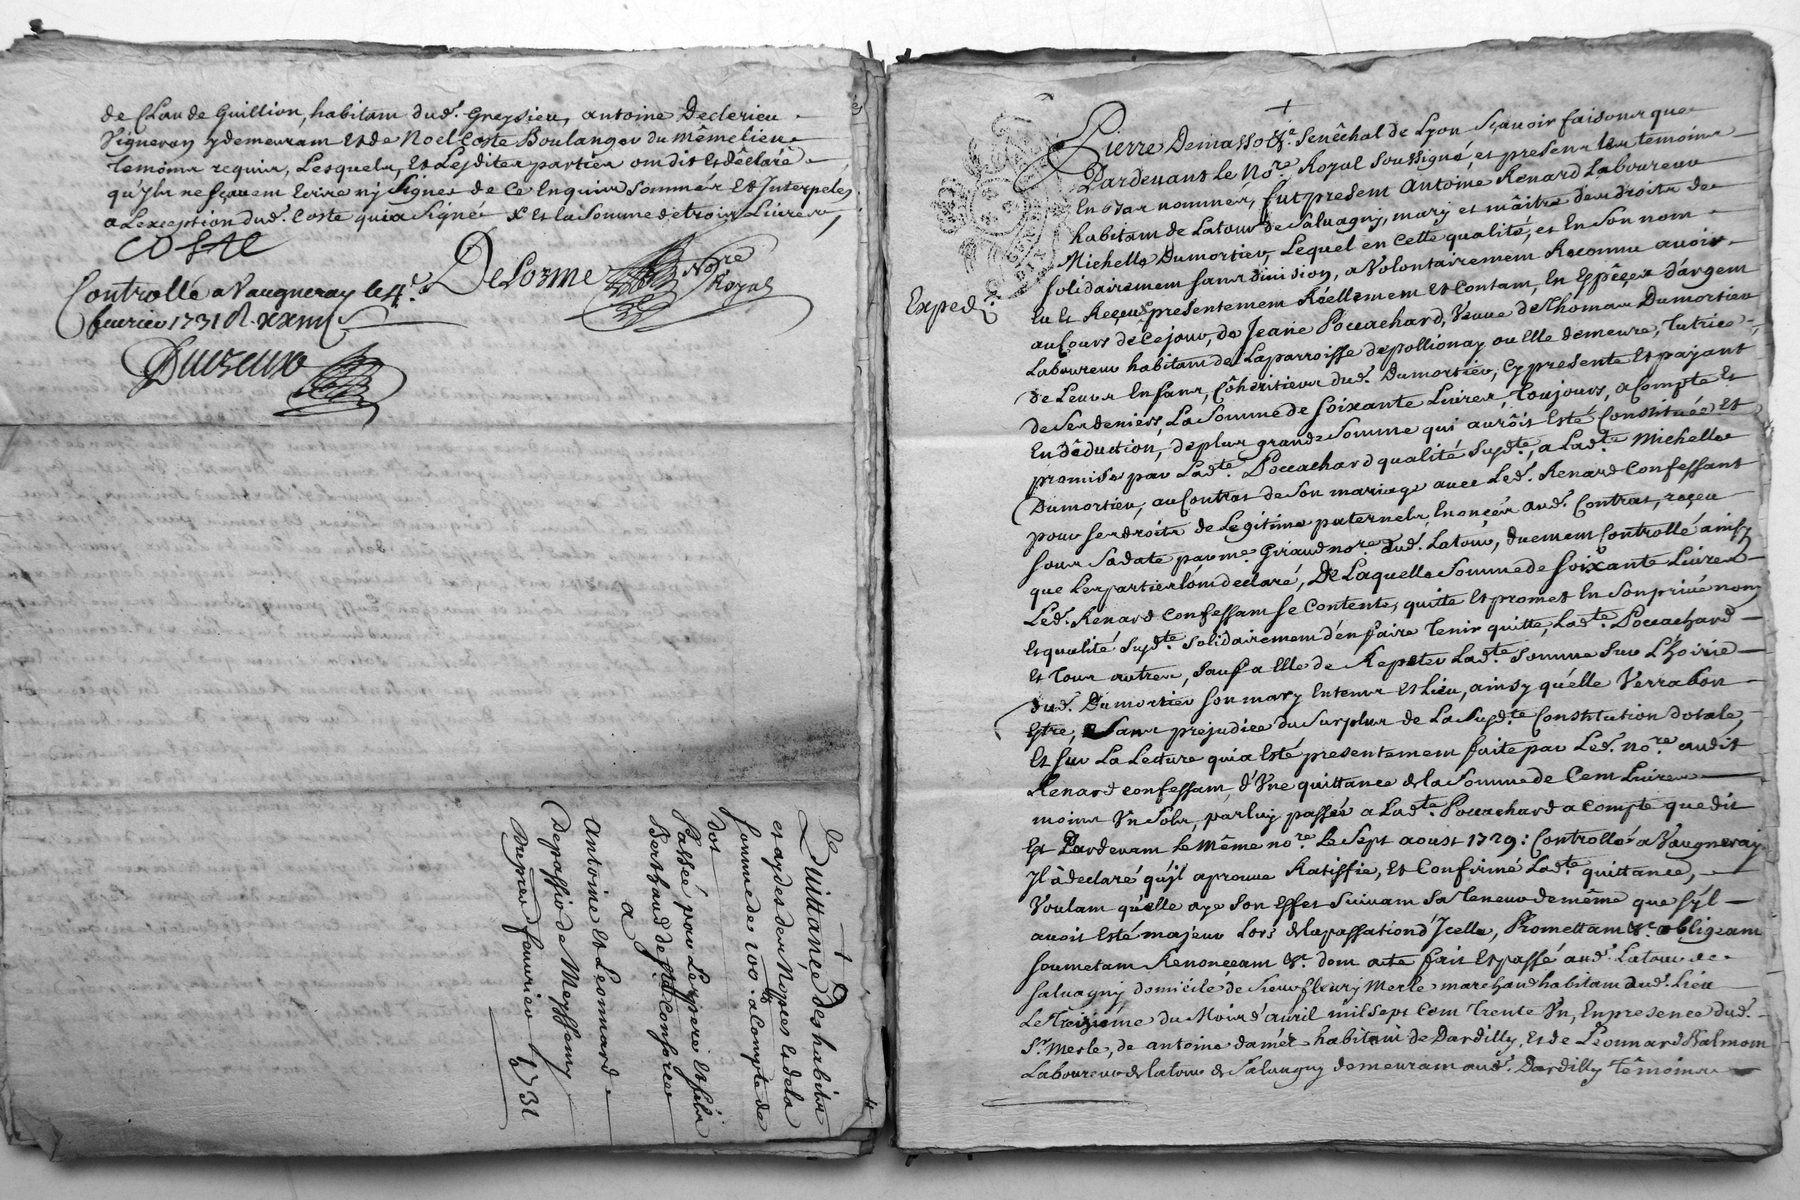 de Claude Guillion, habitam dud. Greysieu, antoine Declerieu
Vigneron y demeuram et de Noel Coste Boulanger du même lieu
temoins requis, Lesquels, et Lesdites parties om dit et déclaré
qu'ils ne sçavem Ecrire ny signer de ce Enquis sommés et Interpelés
a Lexception dud. Coste qui a signé X et la somme de trois Livres
COSTE
Delorme Nore Royal
Controllé a Vaugneray le 4e.
fevrier 1731 R. xxiiij s
De Quittance des habits
et aydes de Nopces et de la
somme de 100 lt. a compte de
dot
Passée par Les pere et fils
Berthaud de Ste Conforce
a
Antoine et Leonnard
Depassio de Meyssemy
Du premier fevrier 1731
Exped.
Pierre Demasso &a. Senêchal de Lyon sçavoir faisons que
Pardevant le Nore. Royal soussigné, et presens les temoins
En bas nommés, fut present Antoine Renard Laboureur
habitam de Latour de Salvagny, mary et maitre des droits de
Michelle Dumortier, Lequel en cette qualité, et en son nom
solidairemem sans division, a Volontairemem Reconnu avoir
Eu et Reçeu presentemem Réellemem et Contam, En Espêçes d'argem
au Cours de ce jour, de Jeane Poccachard, Veuve de Thomas Dumortier
Laboureur habitam de La parroisse de pollionay ou Elle demeure, Tutrice
de Leurs Enfans, Cohéritiers dud. Dumortier, Cy presente et payant
de ses deniers, La somme de soixante Livres, Toujours, a Compte et
En déduction, de plus grande somme qui auroit Esté Constituée et
promise par Ladte. Poccachard qualité susdte., a Ladte. Michelle
Dumortier, au Contrat de son mariage avec Led. Renard Confessant
pour ses droits de Legitime paternels, Enoncés aud. Contrat, reçeu
sous sa date par me. Giraud nore. dud. Latour, duemem Controllé ainsy
que Les parties l'ont declaré, De Laquelle somme de soixante Livres
Led. Renard Confessam se Contente, quitte et promet En son privé nom
et qualité susdte. solidairemem d'en faire Tenir quitte, Ladte. Poccachard
et tous autres, sauf a Elle de Repeter Ladte. somme sur L'hoirie
dud. Dumortier son mary En tems et Lieu, ainsy qu'elle Verra bon
Estre, sans préjudice du surplus de La susdte. Constitution dotale,
Et sur La Lecture qui a Esté presentemem faite par Led. nore. audit
Renard confessam, d'Une quittance de la somme de Cem Livres
moins Un sols, par luy passée a Ladte. Poccachard a compte que dit
Est Pardevam le même nore. Le sept aoust 1729: Controllé a Vaugneray
Il a declaré qu'il aprouve Ratiffie, et Confirmé Ladte. quittance,
Voulam qu'elle aye son effet suivam sa Teneur de même que s'il
avoit Esté majeur Lors de la passation d'Icelle, Promettam &c. obligeam
soumetam Renonceam &c. dom acte fait et passé aud. Latour de
salvagny domicile de sieur fleury Merle marchand habitam dud. Lieu
Le Treizieme du Mois d'avril mil sept Cem Trente Un, En presence dud.
Sr. Merle, de antoine damés habitam de Dardilly, et de Leonnard Valmom
Laboureur de la tour de Salvagny demeuram aud. Dardilly Témoins